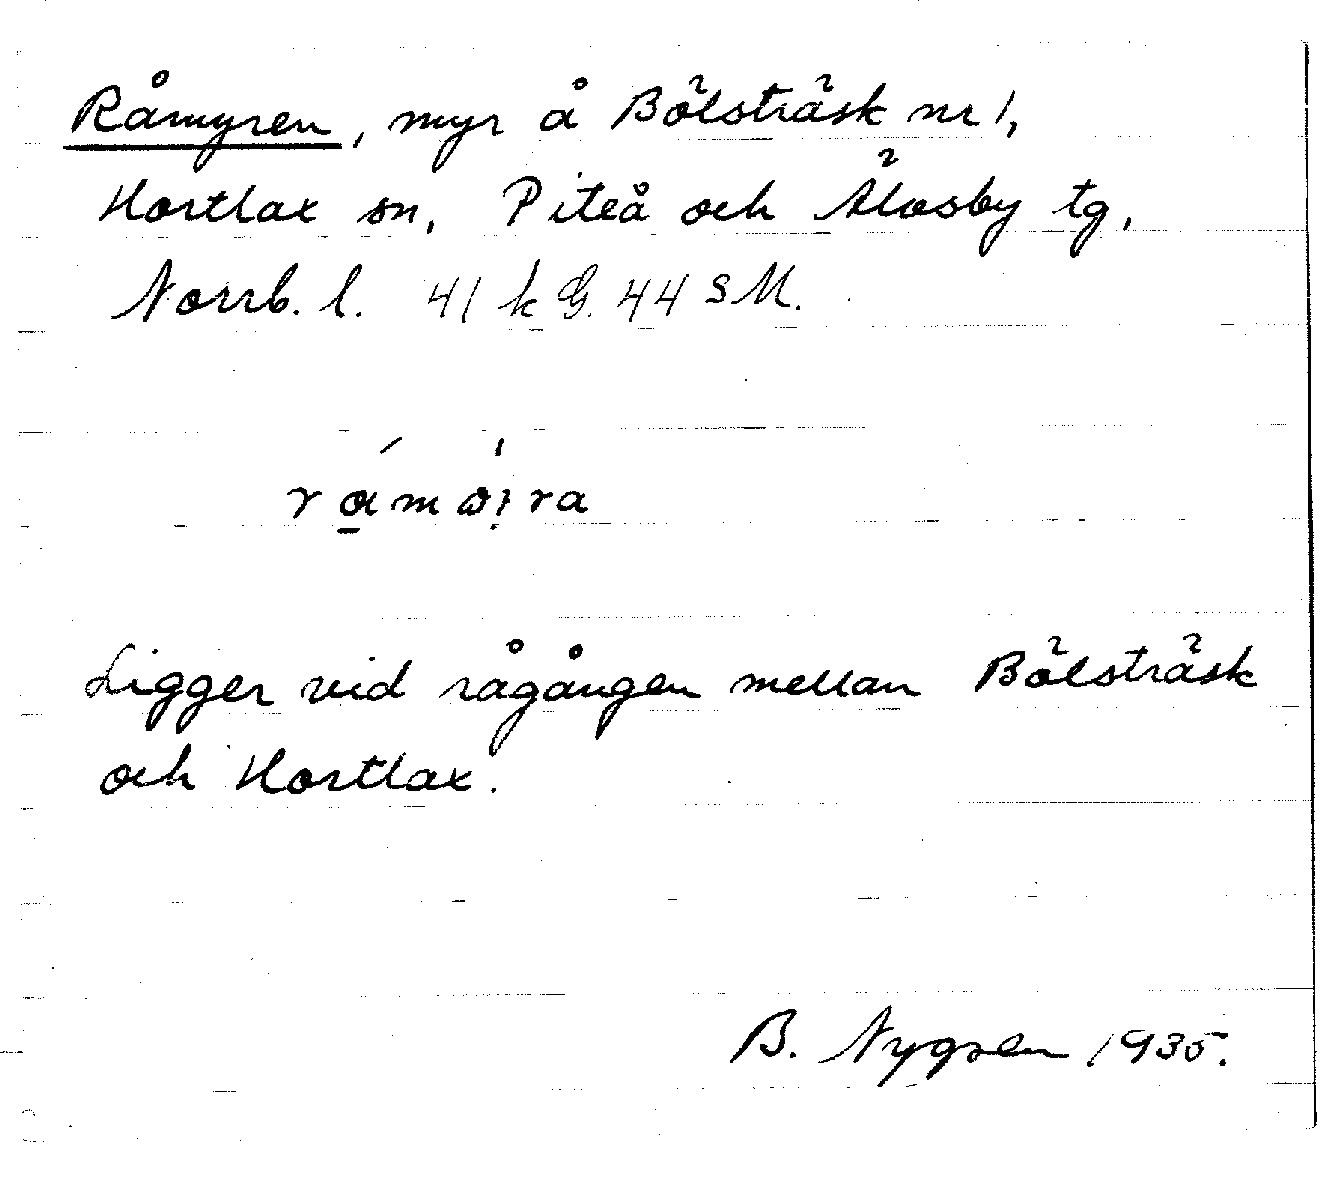 Råmyren, myr å Bölsträsk nr 1,
Hortlax sn, Piteå och Älvsby tg,
Norrb. l. 41 k G. 44 S M.
Ligger vid rågången mellan Bölsträsk
och Hortlax.
B. Nygren 1935.